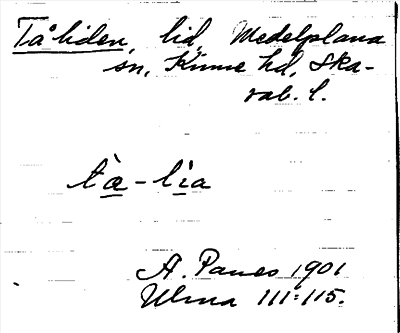 Tåliden, lid, Medelplana
sn, Kinne hd, Ska-
rab. l.
tæ̀-lìa
A. Panes 1901
Ulma 111:115.